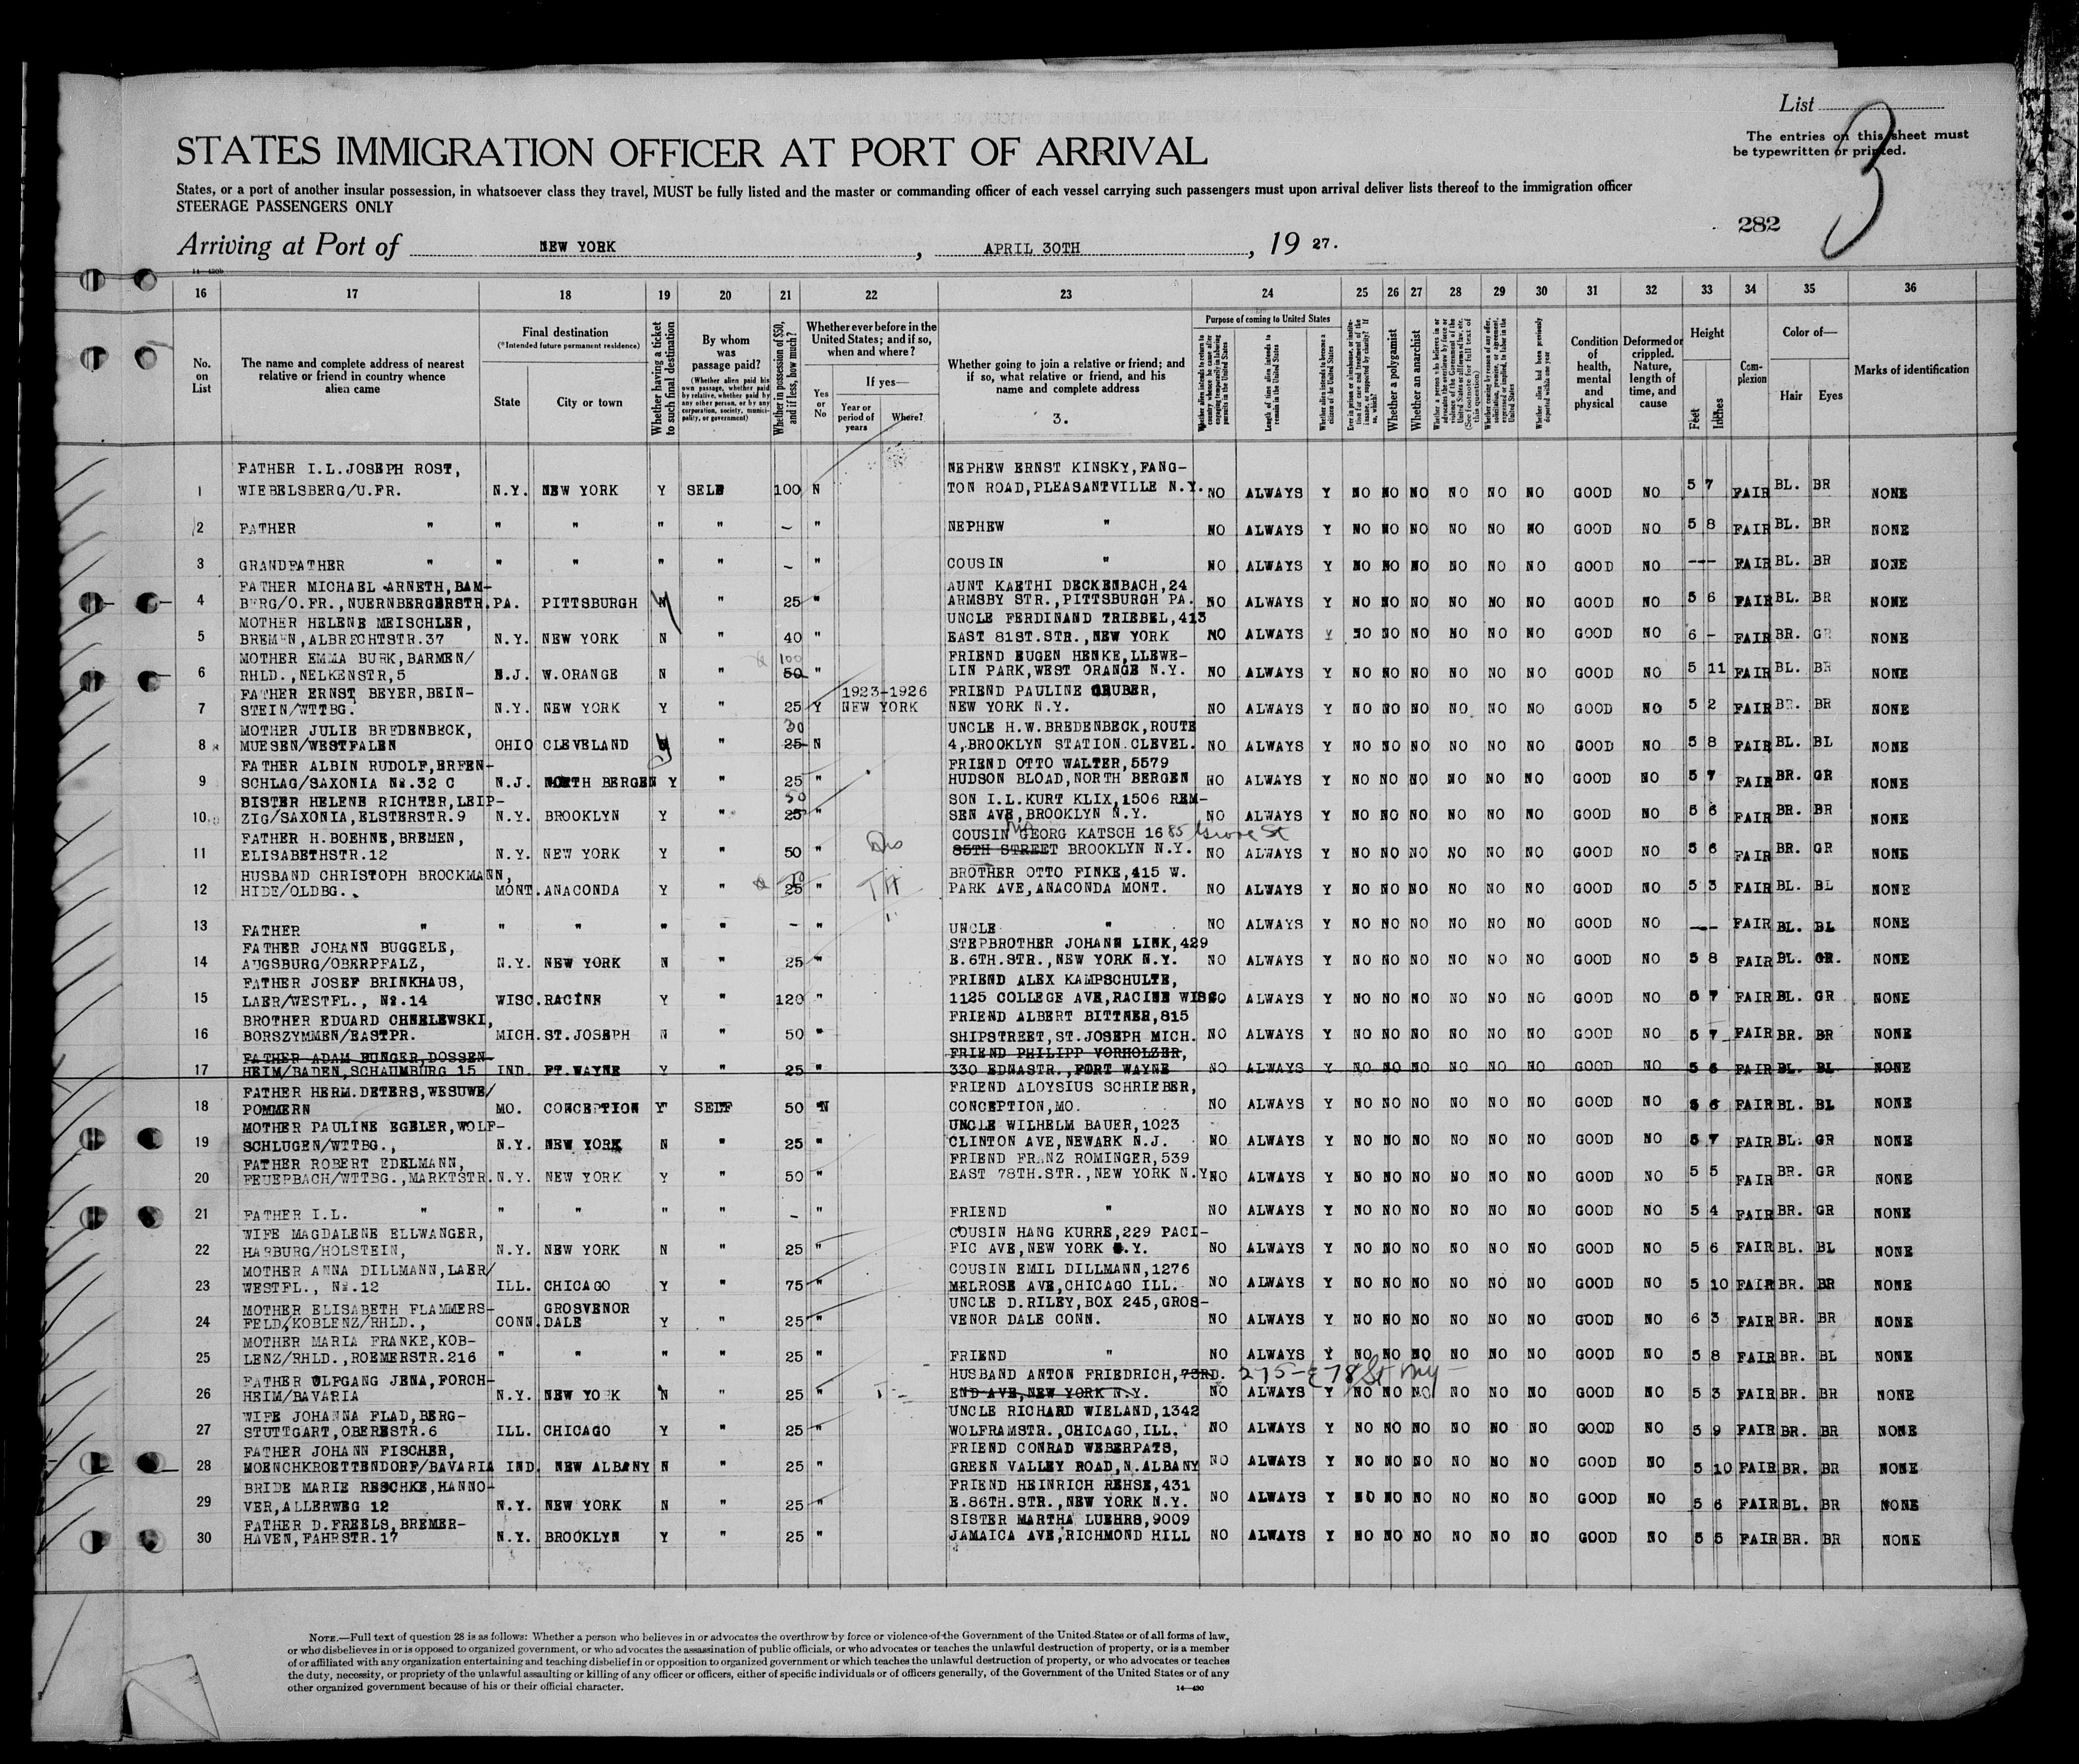 List
3
The entries on this sheet must
be typewritten or printed.
STATES IMMIGRATION OFFICER AT PORT OF ARRIVAL
States, or a port of another insular possession, in whatsoever class they travel, MUST be fully listed and the master or commanding officer of each vessel carrying such passengers must upon arrival deliver lists thereof to the immigration officer
STEERAGE PASSENGERS ONLY
282
Arriving at Port of NEW YORK, APRIL 30TH, 19 27.
16 17 18 19 20 21 22 23 24 25 26 27 28 29 30 31 32 33 34 35 36
No. on List
The name and complete address of nearest relative or friend in country whence alien came
Final destination
(*Intended future permanent residence)
State
City or town
Whether having a ticket to such final destination
By whom was passage paid?
(Whether alien paid his own passage, whether paid by relative, whether paid by any other person, or by any corporation, society, municipality, or government)
Whether in possession of $50, and if less, how much?
Whether ever before in the United States; and if so, when and where?
Yes or No
If yes—
Year or period of years
Where?
Whether going to join a relative or friend; and if so, what relative or friend, and his name and complete address
3.
Purpose of coming to United States
Length of time alien intends to remain in the United States
Whether alien intends to become a citizen of the United States
Whether a polygamist
Whether an anarchist
Condition of health, mental and physical
Deformed or crippled. Nature, length of time, and cause
Height
Feet
Inches
Complexion
Color of—
Hair
Eyes
Marks of identification
FATHER I.L.JOSEPH ROST, NEPHEW ERNST KINSKY,FANG-
1 WIEBELSBERG/U.FR. N.Y. NEW YORK Y SELF 100 N TON ROAD,PLEASANTVILLE N.Y. NO ALWAYS Y NO NO NO NO NO NO GOOD NO 5 7 FAIR BL. BR NONE
2 FATHER " " " " " — " NEPHEW " NO ALWAYS Y NO NO NO NO NO NO GOOD NO 5 8 FAIR BL. BR NONE
3 GRANDFATHER " " " " " — " COUSIN " NO ALWAYS Y NO NO NO NO NO NO GOOD NO --- FAIR BL. BR NONE
FATHER MICHAEL ARNETH,BAM- AUNT KAETHI DECKENBACH,24
4 BERG/O.FR.,NUERNBERGERSTR. PA. PITTSBURGH Y " 25 " ARMSBY STR.,PITTSBURGH PA. NO ALWAYS Y NO NO NO NO NO NO GOOD NO 5 6 FAIR BL. BR NONE
MOTHER HELENE MEISCHLER, UNCLE FERDINAND TRIEBEL,413
5 BREMEN,ALBRECHTSTR.37 N.Y. NEW YORK N " 40 " EAST 81ST.STR.,NEW YORK NO ALWAYS Y NO NO NO NO NO NO GOOD NO 6 - FAIR BR. GR NONE
MOTHER EMMA BURK,BARMEN/ 100 FRIEND EUGEN HENKE,LLEWE-
6 RHLD.,NELKENSTR,5 N.J. W.ORANGE N " 50 " LIN PARK,WEST ORANGE N.Y. NO ALWAYS Y NO NO NO NO NO NO GOOD NO 5 11 FAIR BL. BR NONE
FATHER ERNST BEYER,BEIN- 1923-1926 FRIEND PAULINE GRUBER,
7 STEIN/WTTBG. N.Y. NEW YORK Y " 25 Y NEW YORK NEW YORK N.Y. NO ALWAYS Y NO NO NO NO NO NO GOOD NO 5 2 FAIR BR. BR NONE
MOTHER JULIE BREDENBECK, 30 UNCLE H.W.BREDENBECK,ROUTE
8 MUESEN/WESTFALEN OHIO CLEVELAND Y " 25 N 4,BROOKLYN STATION CLEVEL. NO ALWAYS Y NO NO NO NO NO NO GOOD NO 5 8 FAIR BL. BL NONE
FATHER ALBIN RUDOLF,ERFEN- FRIEND OTTO WALTER,5579
9 SCHLAG/SAXONIA No.32 C N.J. NORTH BERGEN Y " 25 " HUDSON BLOAD,NORTH BERGEN NO ALWAYS Y NO NO NO NO NO NO GOOD NO 5 7 FAIR BR. GR NONE
BISTER HELENE RICHTER,LEIP- 50 SON I.L.KURT KLIX,1506 REM-
10 ZIG/SAXONIA,ELSTERSTR.9 N.Y. BROOKLYN Y " 25 " SEN AVE,BROOKLYN N.Y. NO ALWAYS Y NO NO NO NO NO NO GOOD NO 5 6 FAIR BR. BR NONE
FATHER H.BOEHNE,BREMEN, COUSIN GEORG KATSCH 1685 Grove St
11 ELISABETHSTR.12 N.Y. NEW YORK Y " 50 " 85TH STREET BROOKLYN N.Y. NO ALWAYS Y NO NO NO NO NO NO GOOD NO 5 6 FAIR BR. GR NONE
HUSBAND CHRISTOPH BROCKMANN, BROTHER OTTO FINKE,415 W.
12 HIDE/OLDBG. MONT. ANACONDA Y " 25 " PARK AVE,ANACONDA MONT. NO ALWAYS Y NO NO NO NO NO NO GOOD NO 5 3 FAIR BL. BL NONE
13 FATHER " " " " " - " UNCLE " NO ALWAYS Y NO NO NO NO NO NO GOOD NO --- FAIR BL. BL NONE
FATHER JOHANN BUGGELE, STEPBROTHER JOHANN LINK,429
14 AUGSBURG/OBERPFALZ, N.Y. NEW YORK N " 25 " E.6TH.STR.,NEW YORK N.Y. NO ALWAYS Y NO NO NO NO NO NO GOOD NO 5 8 FAIR BL. GR. NONE
FATHER JOSEF BRINKHAUS, FRIEND ALEX KAMPSCHULTE,
15 LAER/WESTFL., No.14 WISC. RACINE Y " 120 " 1125 COLLEGE AVE,RACINE WISC. NO ALWAYS Y NO NO NO NO NO NO GOOD NO 5 7 FAIR BL. GR NONE
BROTHER EDUARD CHMELEWSKI, FRIEND ALBERT BITTNER,815
16 BORSZYMMEN/EASTPR. MICH. ST.JOSEPH N " 50 " SHIPSTREET,ST.JOSEPH MICH. NO ALWAYS Y NO NO NO NO NO NO GOOD NO 5 7 FAIR BR. BR NONE
FATHER ADAM BUNGER,DOSSEN- FRIEND PHILIPP VORHOLZER,
17 HEIM/BADEN,SCHAUMBURG 15 IND. FT.WAYNE Y " 25 " 330 EDNASTR.,FORT WAYNE NO ALWAYS Y NO NO NO NO NO NO GOOD NO 5 6 FAIR BL. BL NONE
FATHER HERM.DETERS,WESUWE/ FRIEND ALOYSIUS SCHRIEBER,
18 POMMERN MO. CONCEPTION Y SELF 50 N CONCEPTION,MO. NO ALWAYS Y NO NO NO NO NO NO GOOD NO 5 6 FAIR BL. BL NONE
MOTHER PAULINE EGELER,WOLF- UNCLE WILHELM BAUER,1023
19 SCHLUGEN/WTTBG., N.Y. NEW YORK N " 25 " CLINTON AVE,NEWARK N.J. NO ALWAYS Y NO NO NO NO NO NO GOOD NO 5 7 FAIR BL. GR NONE
FATHER ROBERT EDELMANN, FRIEND FRANZ ROMINGER,539
20 FEUERBACH/WTTBG.,MARKTSTR. N.Y. NEW YORK Y " 50 " EAST 78TH.STR.,NEW YORK N.Y. NO ALWAYS Y NO NO NO NO NO NO GOOD NO 5 5 FAIR BR. GR NONE
21 FATHER I.L. " " " " " - " FRIEND " NO ALWAYS Y NO NO NO NO NO NO GOOD NO 5 4 FAIR BR. GR NONE
WIFE MAGDALENE ELLWANGER, COUSIN HANG KURRE,229 PACI-
22 HARBURG/HOLSTEIN, N.Y. NEW YORK N " 25 " FIC AVE,NEW YORK N.Y. NO ALWAYS Y NO NO NO NO NO NO GOOD NO 5 6 FAIR BL. BL NONE
MOTHER ANNA DILLMANN,LAER/ COUSIN EMIL DILLMANN,1276
23 WESTFL., No.12 ILL. CHICAGO Y " 75 " MELROSE AVE,CHICAGO ILL. NO ALWAYS Y NO NO NO NO NO NO GOOD NO 5 10 FAIR BR. BR NONE
MOTHER ELISABETH FLAMMERS- GROSVENOR UNCLE D.RILEY,BOX 245,GROS-
24 FELD,KOBLENZ/RHLD., CONN. DALE Y " 25 " VENOR DALE CONN. NO ALWAYS Y NO NO NO NO NO NO GOOD NO 6 3 FAIR BR. BR NONE
MOTHER MARIA FRANKE,KOB-
25 LENZ/RHLD.,ROEMERSTR.216 " " " " 25 " FRIEND " NO ALWAYS Y NO NO NO NO NO NO GOOD NO 5 8 FAIR BR. BL NONE
FATHER WLFGANG JENA,FORCH- HUSBAND ANTON FRIEDRICH,73RD. 275-E 78 St ny
26 HEIM/BAVARIA N.Y. NEW YORK N " 25 " END AVE,NEW YORK N.Y. NO ALWAYS Y NO NO NO NO NO NO GOOD NO 5 3 FAIR BR. BR NONE
WIFE JOHANNA FLAD,BERG- UNCLE RICHARD WIELAND,1342
27 STUTTGART,OBERESTR.6 ILL. CHICAGO Y " 25 " WOLFRAMSTR.,CHICAGO,ILL. NO ALWAYS Y NO NO NO NO NO NO GOOD NO 5 9 FAIR BR. BR NONE
FATHER JOHANN FISCHER, FRIEND CONRAD WEBERPATS,
28 MOENCHKROETTENDORF/BAVARIA IND. NEW ALBANY N " 25 " GREEN VALLEY ROAD,N.ALBANY NO ALWAYS Y NO NO NO NO NO NO GOOD NO 5 10 FAIR BR. BR NONE
BRIDE MARIE RESCHKE,HANNO- FRIEND HEINRICH REHSE,431
29 VER,ALLERWEG 12 N.Y. NEW YORK N " 25 " E.86TH.STR.,NEW YORK N.Y. NO ALWAYS Y NO NO NO NO NO NO GOOD NO 5 6 FAIR BL. BR NONE
FATHER D.FREELS,BREMER- SISTER MARTHA LUEHRS,9009
30 HAVEN,FAHRSTR.17 N.Y. BROOKLYN Y " 25 " JAMAICA AVE,RICHMOND HILL NO ALWAYS Y NO NO NO NO NO NO GOOD NO 5 5 FAIR BR. BR NONE
NOTE.—Full text of question 28 is as follows: Whether a person who believes in or advocates the overthrow by force or violence of the Government of the United States or of all forms of law,
or who disbelieves in or is opposed to organized government, or who advocates the assassination of public officials, or who advocates or teaches the unlawful destruction of property, or is a member
of or affiliated with any organization entertaining and teaching disbelief in or opposition to organized government or which teaches the unlawful destruction of property, or who advocates or teaches
the duty, necessity, or propriety of the unlawful assaulting or killing of any officer or officers, either of specific individuals or of officers generally, of the Government of the United States or of any
other organized government because of his or their official character.
14—430